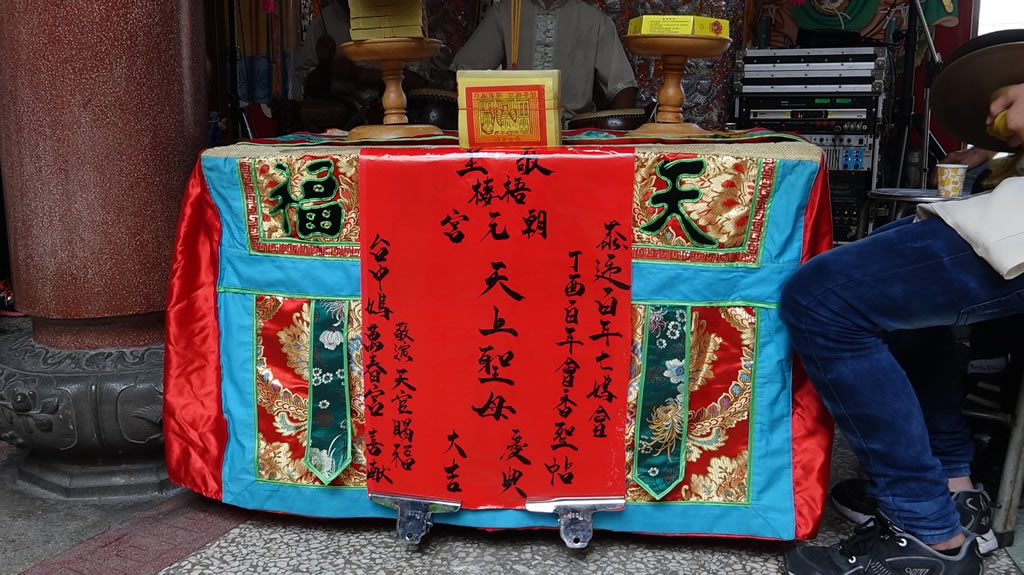 天
福
敬
至
梧
棲
朝
元
宮
恭迎百年七媽會
丁酉百年會香聖帖
天上聖母
慶典
大吉
敬演天官賜福
台中媽萬春宮喜献